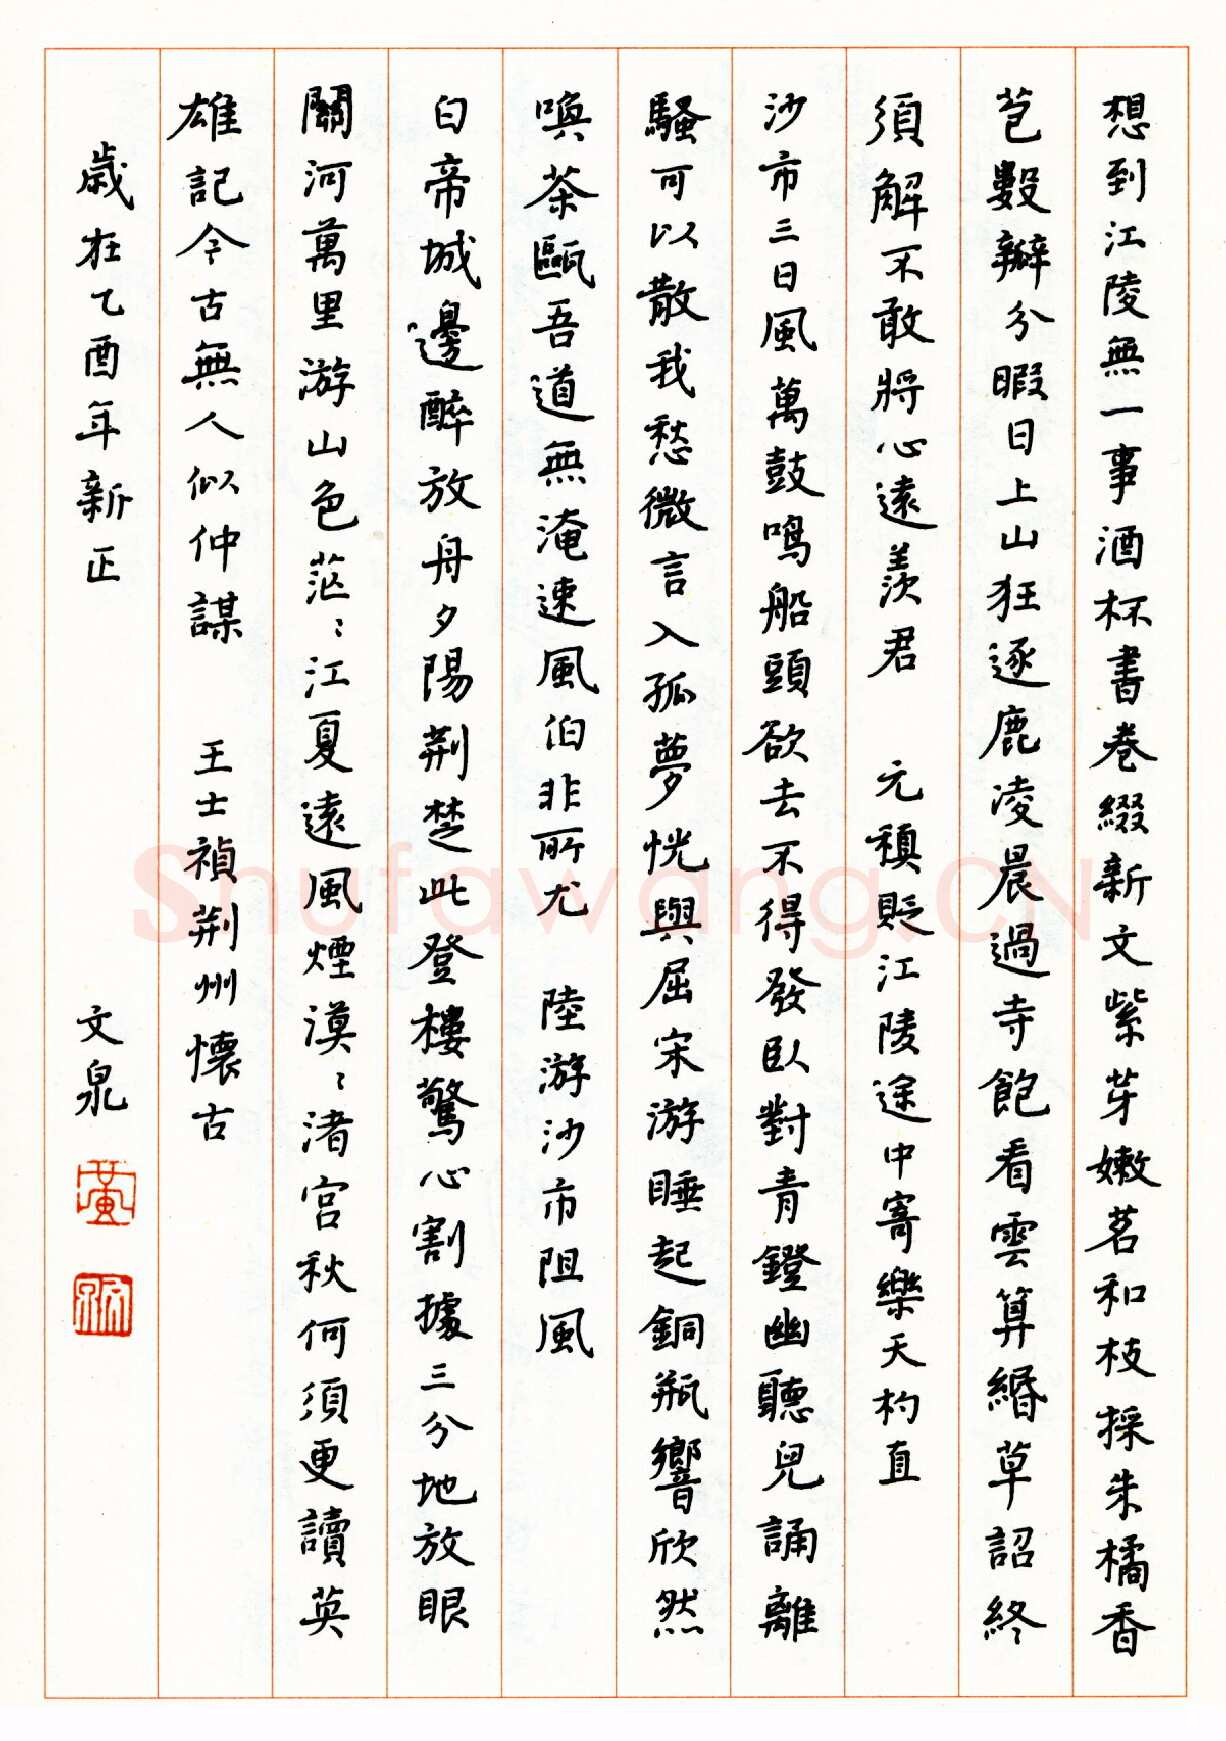 想到江陵無一事酒杯書卷綴新文紫芽嫩茗和枝採朱橘香
苞數瓣分暇日上山狂逐鹿凌晨過寺飽看雲算緡草詔終
須解不敢將心遠羨君 元稹貶江陵途中寄樂天杓直
沙市三日風萬鼓鳴船頭欲去不得發臥對青鐙幽聽兒誦離
騷可以散我愁微言入孤夢恍與屈宋游睡起銅瓶響欣然
喚茶甌吾道無淹速風伯非所尤 陸游沙市阻風
白帝城邊醉放舟夕陽荆楚此登樓驚心割據三分地放眼
關河萬里游山色茫〻江夏遠風煙漠〻渚宮秋何須更讀英
雄記今古無人似仲謀 王士禎荆州懷古
歲在乙酉年新正 文泉
Shufawang.CN